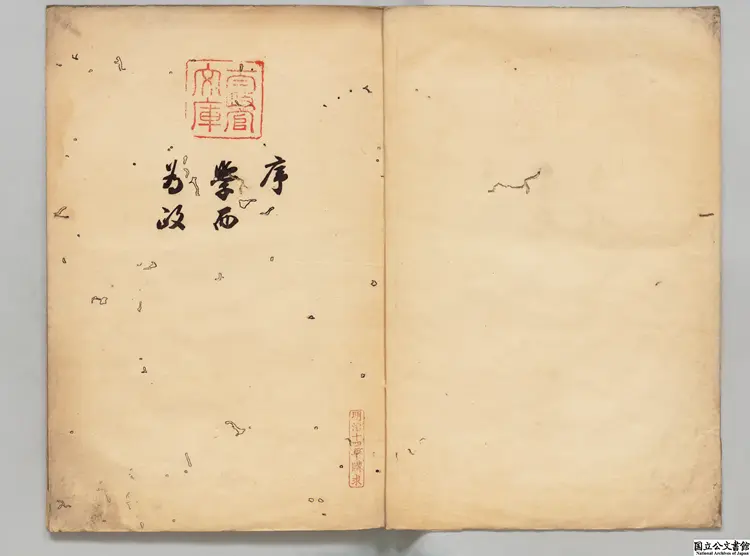 文庫
序
學而
為政
明治十四年購求
国立公文書館
National Archives of Japan